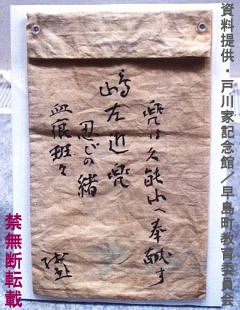 資料提供・戸川家記念館／早島町教育委員会
兜は久能山へ奉献す
島左近兜
忍びの緒
血痕斑々
禁無断転載